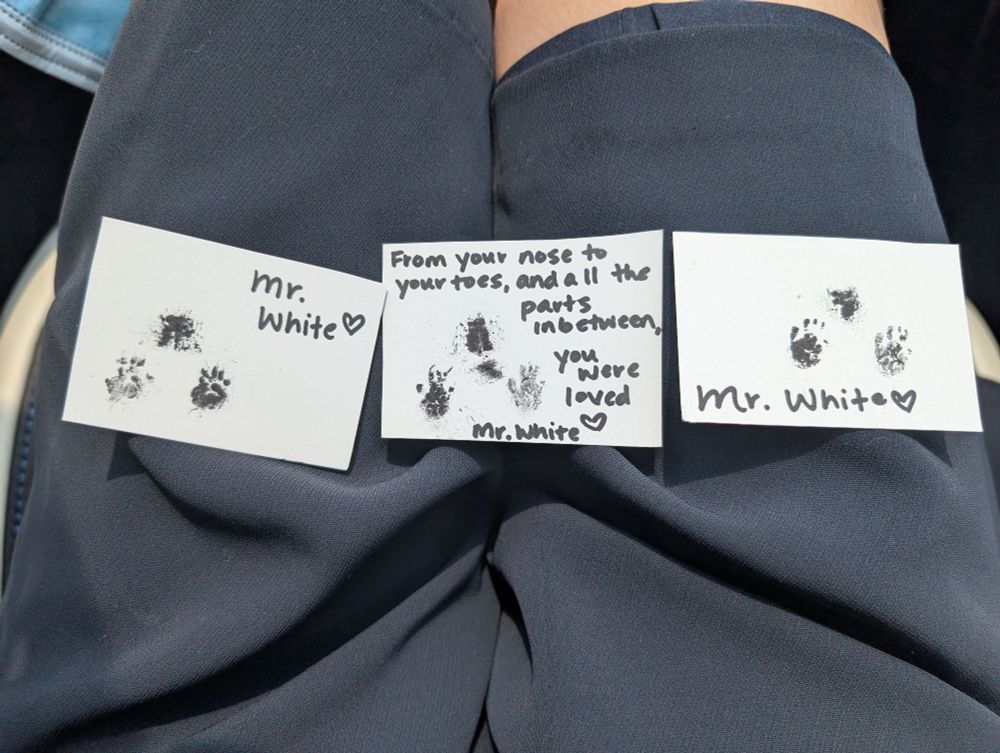 Mr.
White♡
From your nose to
your toes, and all the
parts
inbetween,
you
were
loved
♡
Mr. White
Mr. White♡